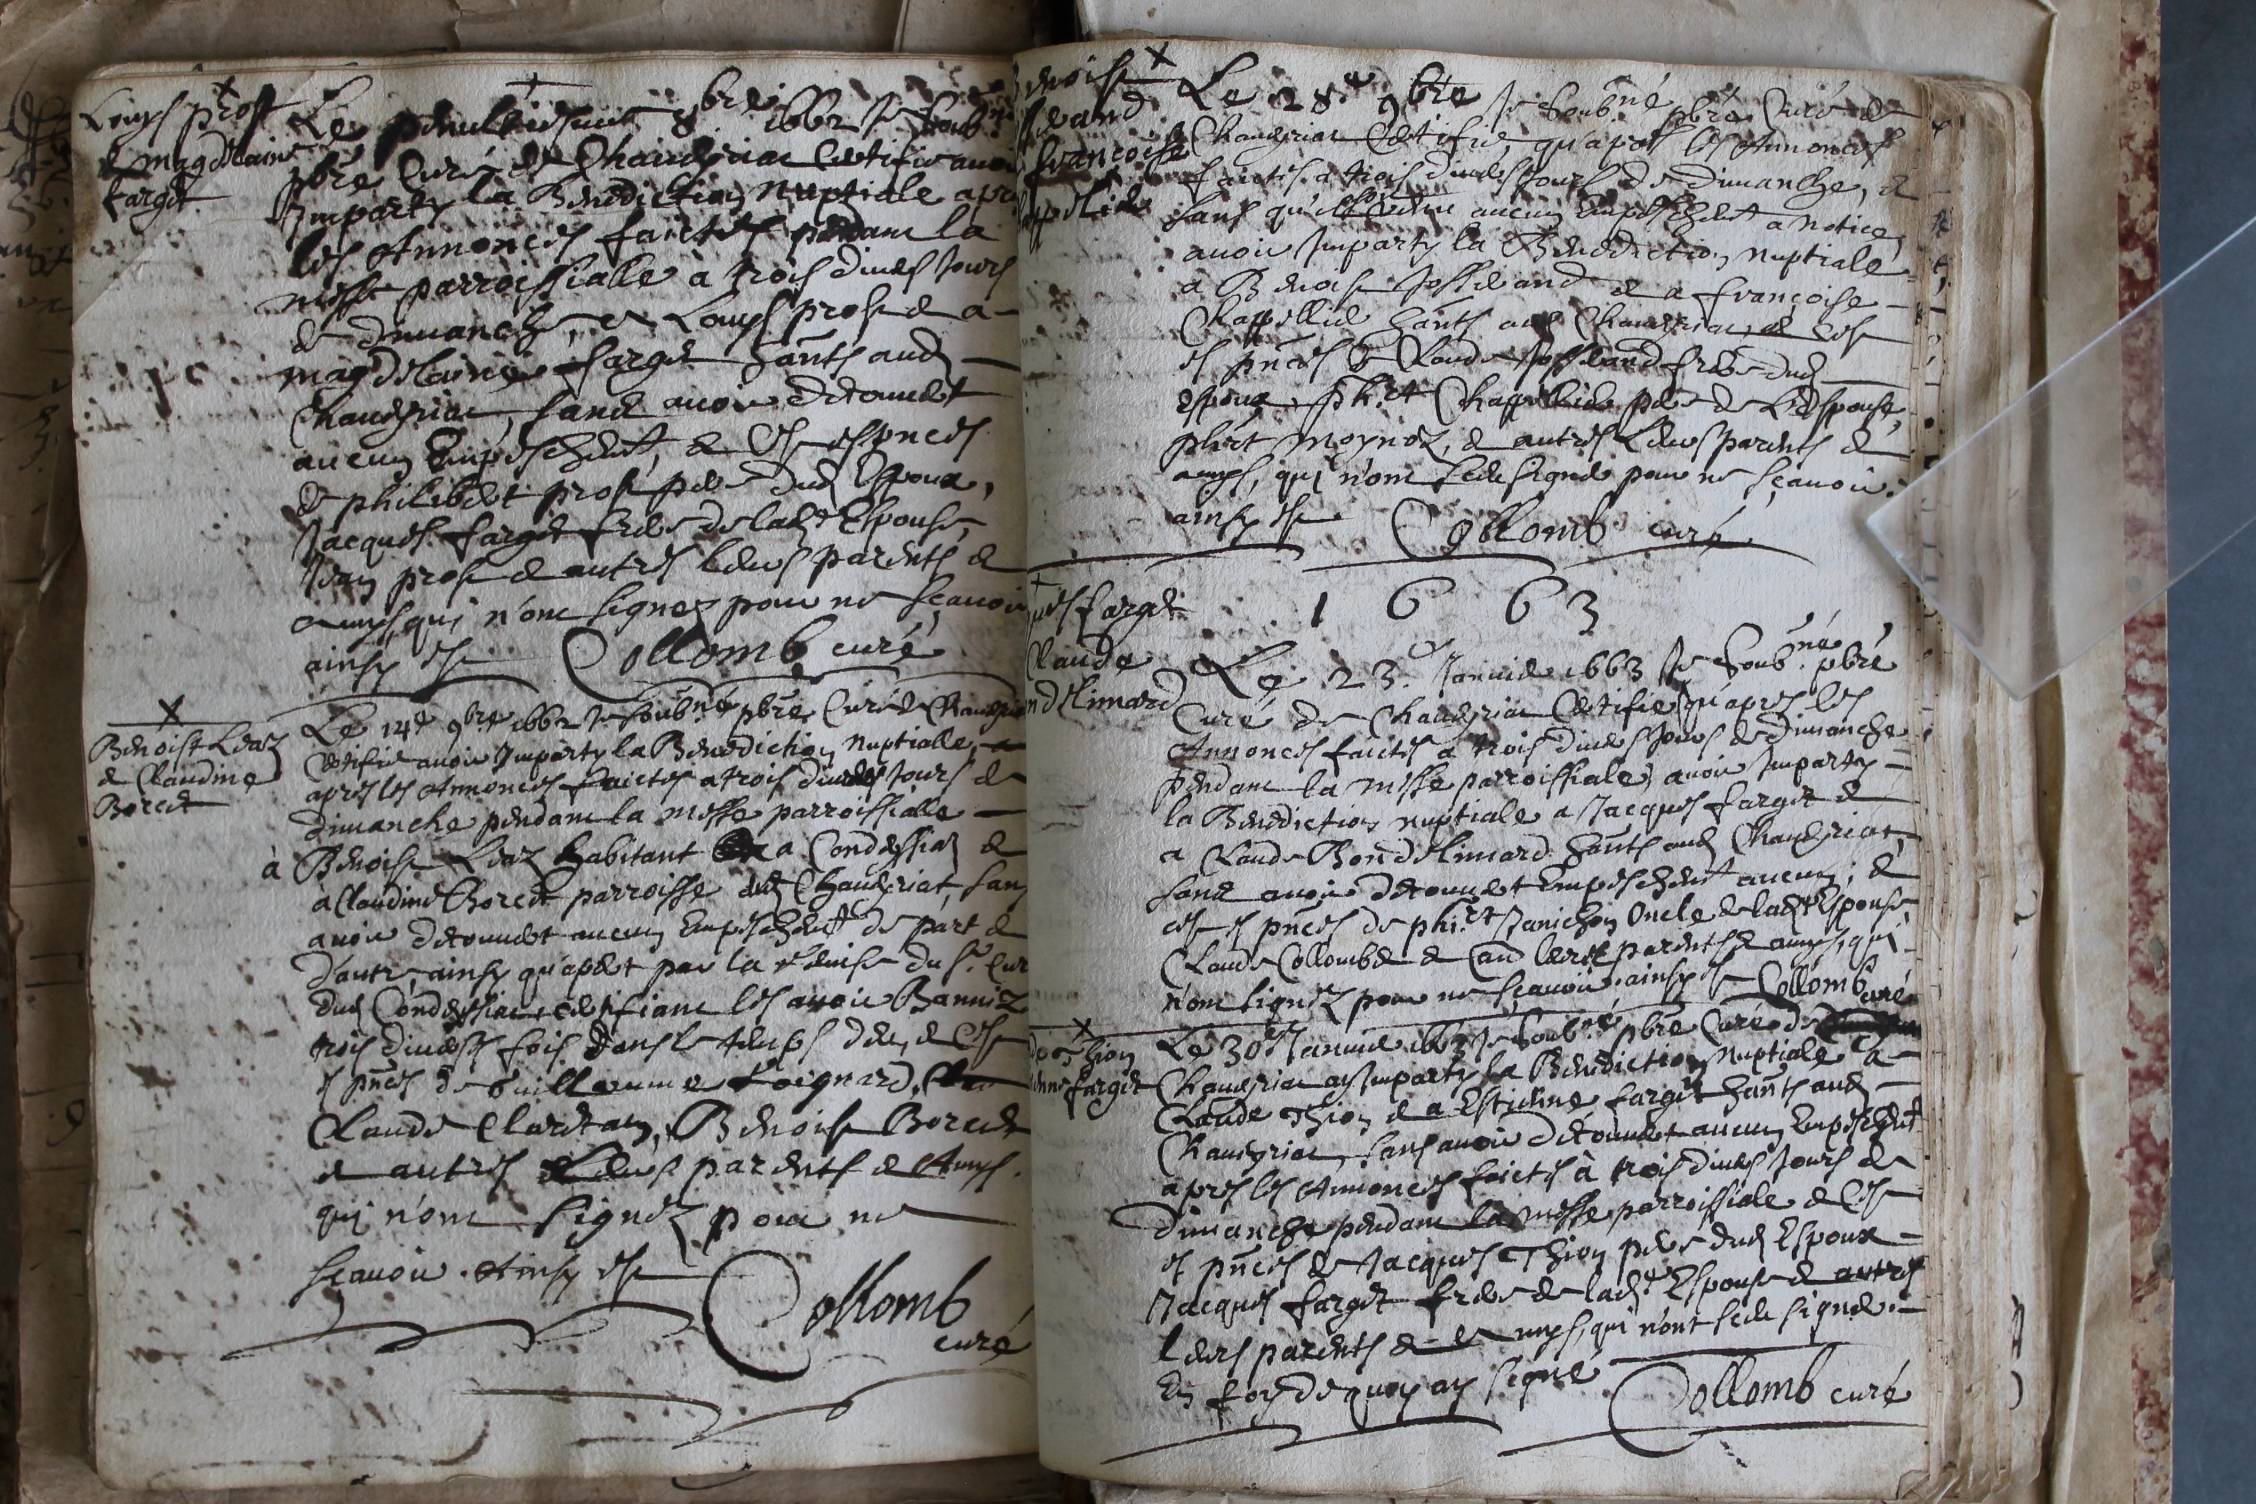 Louys Prost
& magdelaine
farget
Le penultiesme 8bre 1662 Je soubné
pbre Curé de Chaveyriat Certifie avoir
Imparty la Benediction Nuptiale apres
les Annonces faictes pendant la
messe parroissialle à trois divers Jours
de dimanche, a Louys prost & a
magdelaine farget hants aud
Chaveyriat, sans avoir decouvert
aucun Empeschent, & Ce es pnces
de philibert prost pere dud Espoux,
Jacques farget frere de ladte Espouse,
Jean prost & autres leurs parents &
amys, qui n'ont signez pour ne sçavoir
ainsy est Collomb curé
Benoist Leaz
& Claudine
Borcet
Le 14e 9bre 1662 Je soubné pbre Curé de Chaveyriat
Certifie avoir Imparty la Benediction Nuptialle,
apres les Annonces faictes a trois divers Jours de
dimanche pendant la messe parroissialle
à Benoist Leaz habitant a Condeyssiat &
à Claudine Borcet parroisse dud Chaveyriat, sans
avoir decouvert aucun Empeschent de part &
d'autre, ainsy qu'apert par la remise du sr Curé
dud Condeyssiat certifiant les avoir Bannis
trois diverses fois dans le temps deu, & Ce
es pnces de Guillaume Loignard,
Claude Claretan, Benoist Borcet
& autres leurs parents & Amys.
qui n'ont signez pour ne
sçavoir. Ainsy est
Collomb
curé
Benoist
Josserand
françoise
Chappellid
Le 28e 9bre Je soubné pbre Curé de
Chaveyriat Certifie, qu'apres les Annonces
faictes a trois divers Jours de dimanche, &
sans qu'il soit venu aucun Empeschent a notice,
avoir Imparty la Benediction nuptiale
a Benoist Josserand & a françoise
Chappellid hants aud Chaveyriat, & Ce
es pnces de Claude Josserand frere dud
Espoux, phirt Chappellid pere de L'Espouse,
phirt moynoz, & autres leurs parents &
amys, qui n'ont sceu signer pour ne sçavoir.
ainsy est Collomb curé
1663
Jacques farget
Claude
Bondelinnard
Le 23e Janvier 1663 Je soubné pbre
Curé de Chaveyriat Certifie qu'apres les
Annonces faictes a trois divers Jours de dimanche
pendant la messe parroissiale, avoir Imparty
la Benediction nuptiale a Jacques farget &
a Claude Bondelinnard hants aud Chaveyriat,
sans avoir decouvert Empeschent aucun; &
ce es pnces de phirt Janichon Oncle de ladte Espouse,
Claude Collombet & leurs parents & amys, qui
n'ont signez pour ne sçavoir. ainsy est Collomb curé
Thion
farget
Le 30e Janvier 1663 Je soubné pbre Curé de
Chaveyriat ay Imparty la Benediction Nuptiale a
Claude Thion & a Estienne farget hants aud
Chaveyriat, sans avoir decouvert aucun Empeschent
apres les Annonces faictes à trois divers Jours de
dimanche pendant la messe parroissiale & Ce
es pnces de Jacques Thion pere dud Espoux
Jacques farget frere de ladte Espouse & autres
leurs parents & amys, qui n'ont sceu signer.
En foy de quoy ay signé Collomb curé